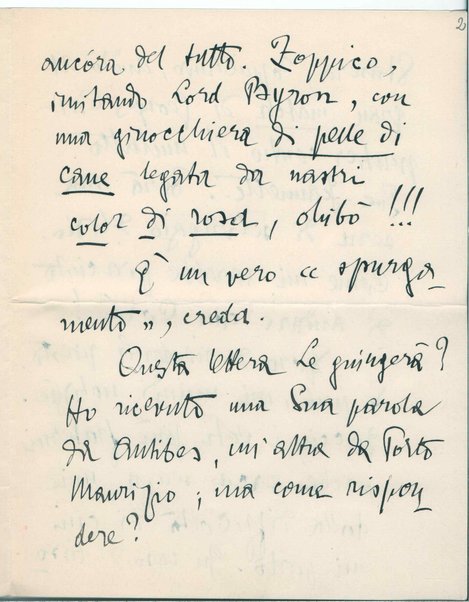 2
ancóra del tutto. Zoppico,
imitando Lord Byron, con
una ginocchiera di pelle di
cane legata da nastri
color di rosa, olibò!!!
È un vero « spurga-
mento », creda.
Questa lettera Le giungerà?
Ho ricevuto una Sua parola
da Antibes, un'altra da Porto
Maurizio; ma come rispon
dere?